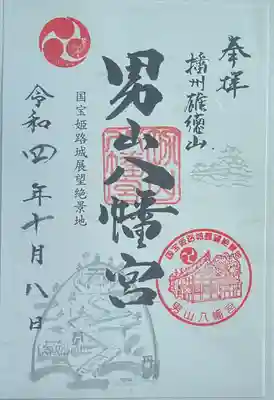 奉拝
播州雄徳山
男山八幡宮
国宝姫路城展望絶景地
令和四年十月八日
男山八幡宮